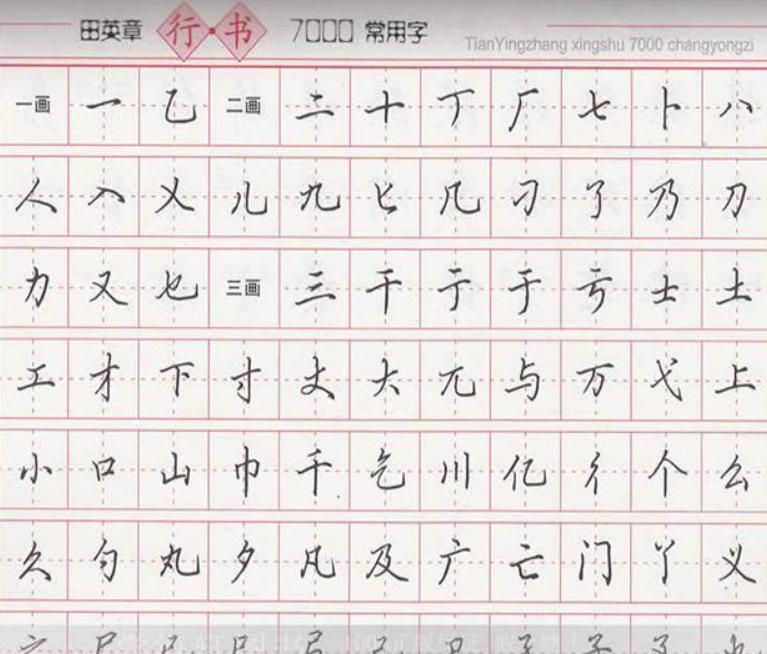 田英章 行·书 7000 常用字
TianYingzhang xingshu 7000 changyongzi
一画 一 乙 二画 二 十 丁 厂 七 卜 八
人 入 乂 儿 九 匕 几 刁 了 乃 刀
力 又 乜 三画 三 干 亍 于 亏 士 土
工 才 下 寸 丈 大 兀 与 万 弋 上
小 口 山 巾 千 乞 川 亿 彳 个 么
久 勺 丸 夕 凡 及 广 亡 门 丫 义